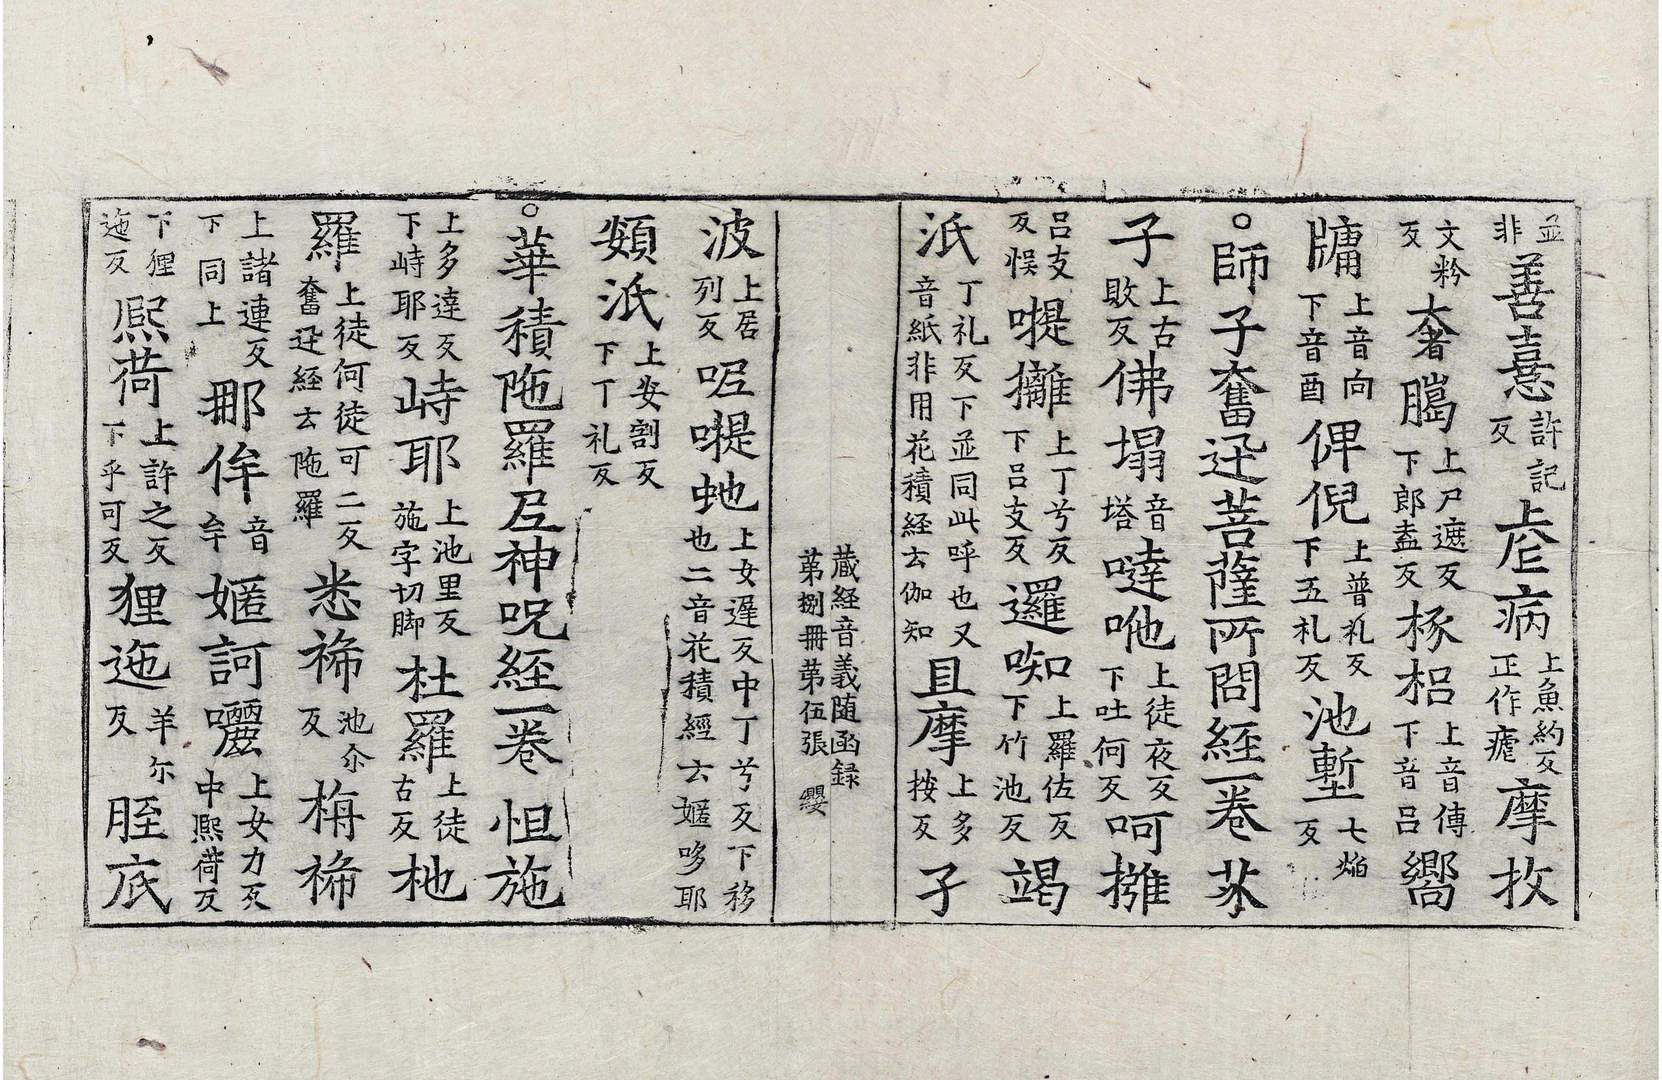 並非善憙許記反疟病上魚約反正作瘧摩抆
文粉反奢臈上尸遮反下郎盍反椓梠上音傳下音呂嚮
牗上音向下音酉俾倪上普礼反下五礼反池塹七焰反
○師子奮迅菩薩所問經一卷
子上古敗反佛塌音塔噠咃上徒夜反下吐何反呵擁
呂支反悮㖷攡上丁兮反下呂支反邏㗌上羅佐反下竹池反竭
泜丁礼反下並同此呼也又音紙非用花積経云伽知且摩上多按反子
藏経音義随函録第捌冊第伍張 纓
波上居列反呢㖷虵上女遅反中丁兮反下移也二音花積經云嫟哆耶
頞泜上安割反下丁礼反
○華積陁羅尼神呪經一卷 怛施
上多達反下峙耶反峙耶上池里反施字切脚杜羅上徒古反杝
羅上徒何徒可二反奮迅経云陁羅悉䄺池尒反栴䄺
上諸連反下同上那侔音牟嫟訶囇上女力反中熙荷反
下狸迤反熙荷上許之反下乎可反狸迤羊尓反胵底